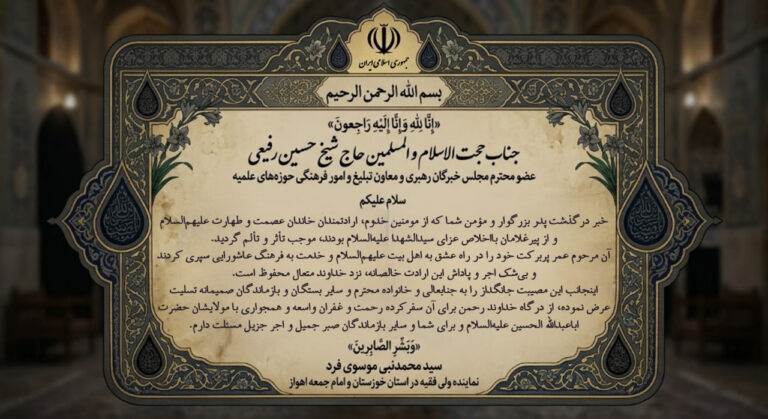 جمهوری اسلامی ایران
بسم الله الرحمن الرحیم
«إِنَّا لِلَّهِ وَإِنَّا إِلَيْهِ رَاجِعونَ»
جناب حجت الاسلام و المسلمین حاج شیخ حسین رفیعی
عضو محترم مجلس خبرگان رهبری و معاون تبلیغ و امور فرهنگی حوزه‌های علمیه
سلام علیکم
خبر درگذشت پدر بزرگوار و مؤمن شما که از مومنین خدوم، ارادتمندان خاندان عصمت و طهارت علیهم‌السلام
و از پیرغلامان بااخلاص عزای سیدالشهدا علیه‌السلام بودند، موجب تأثر و تألم گردید.
آن مرحوم عمر پربرکت خود را در راه عشق به اهل بیت علیهم‌السلام و خدمت به فرهنگ عاشورایی سپری کردند
و بی‌شک اجر و پاداش این ارادت خالصانه، نزد خداوند متعال محفوظ است.
اینجانب این مصیبت جانگداز را به جنابعالی و خانواده محترم و سایر بستگان و بازماندگان صمیمانه تسلیت
عرض نموده، از درگاه خداوند رحمن برای آن سفرکرده رحمت و غفران واسعه و همجواری با مولایشان حضرت
اباعبدالله الحسین علیه‌السلام و برای شما و سایر بازماندگان صبر جمیل و اجر جزیل مسئلت دارم.
«وَبَشِّرِ الصَّابِرِينَ»
سید محمدنبی موسوی فرد
نماینده ولی فقیه در استان خوزستان و امام جمعه اهواز